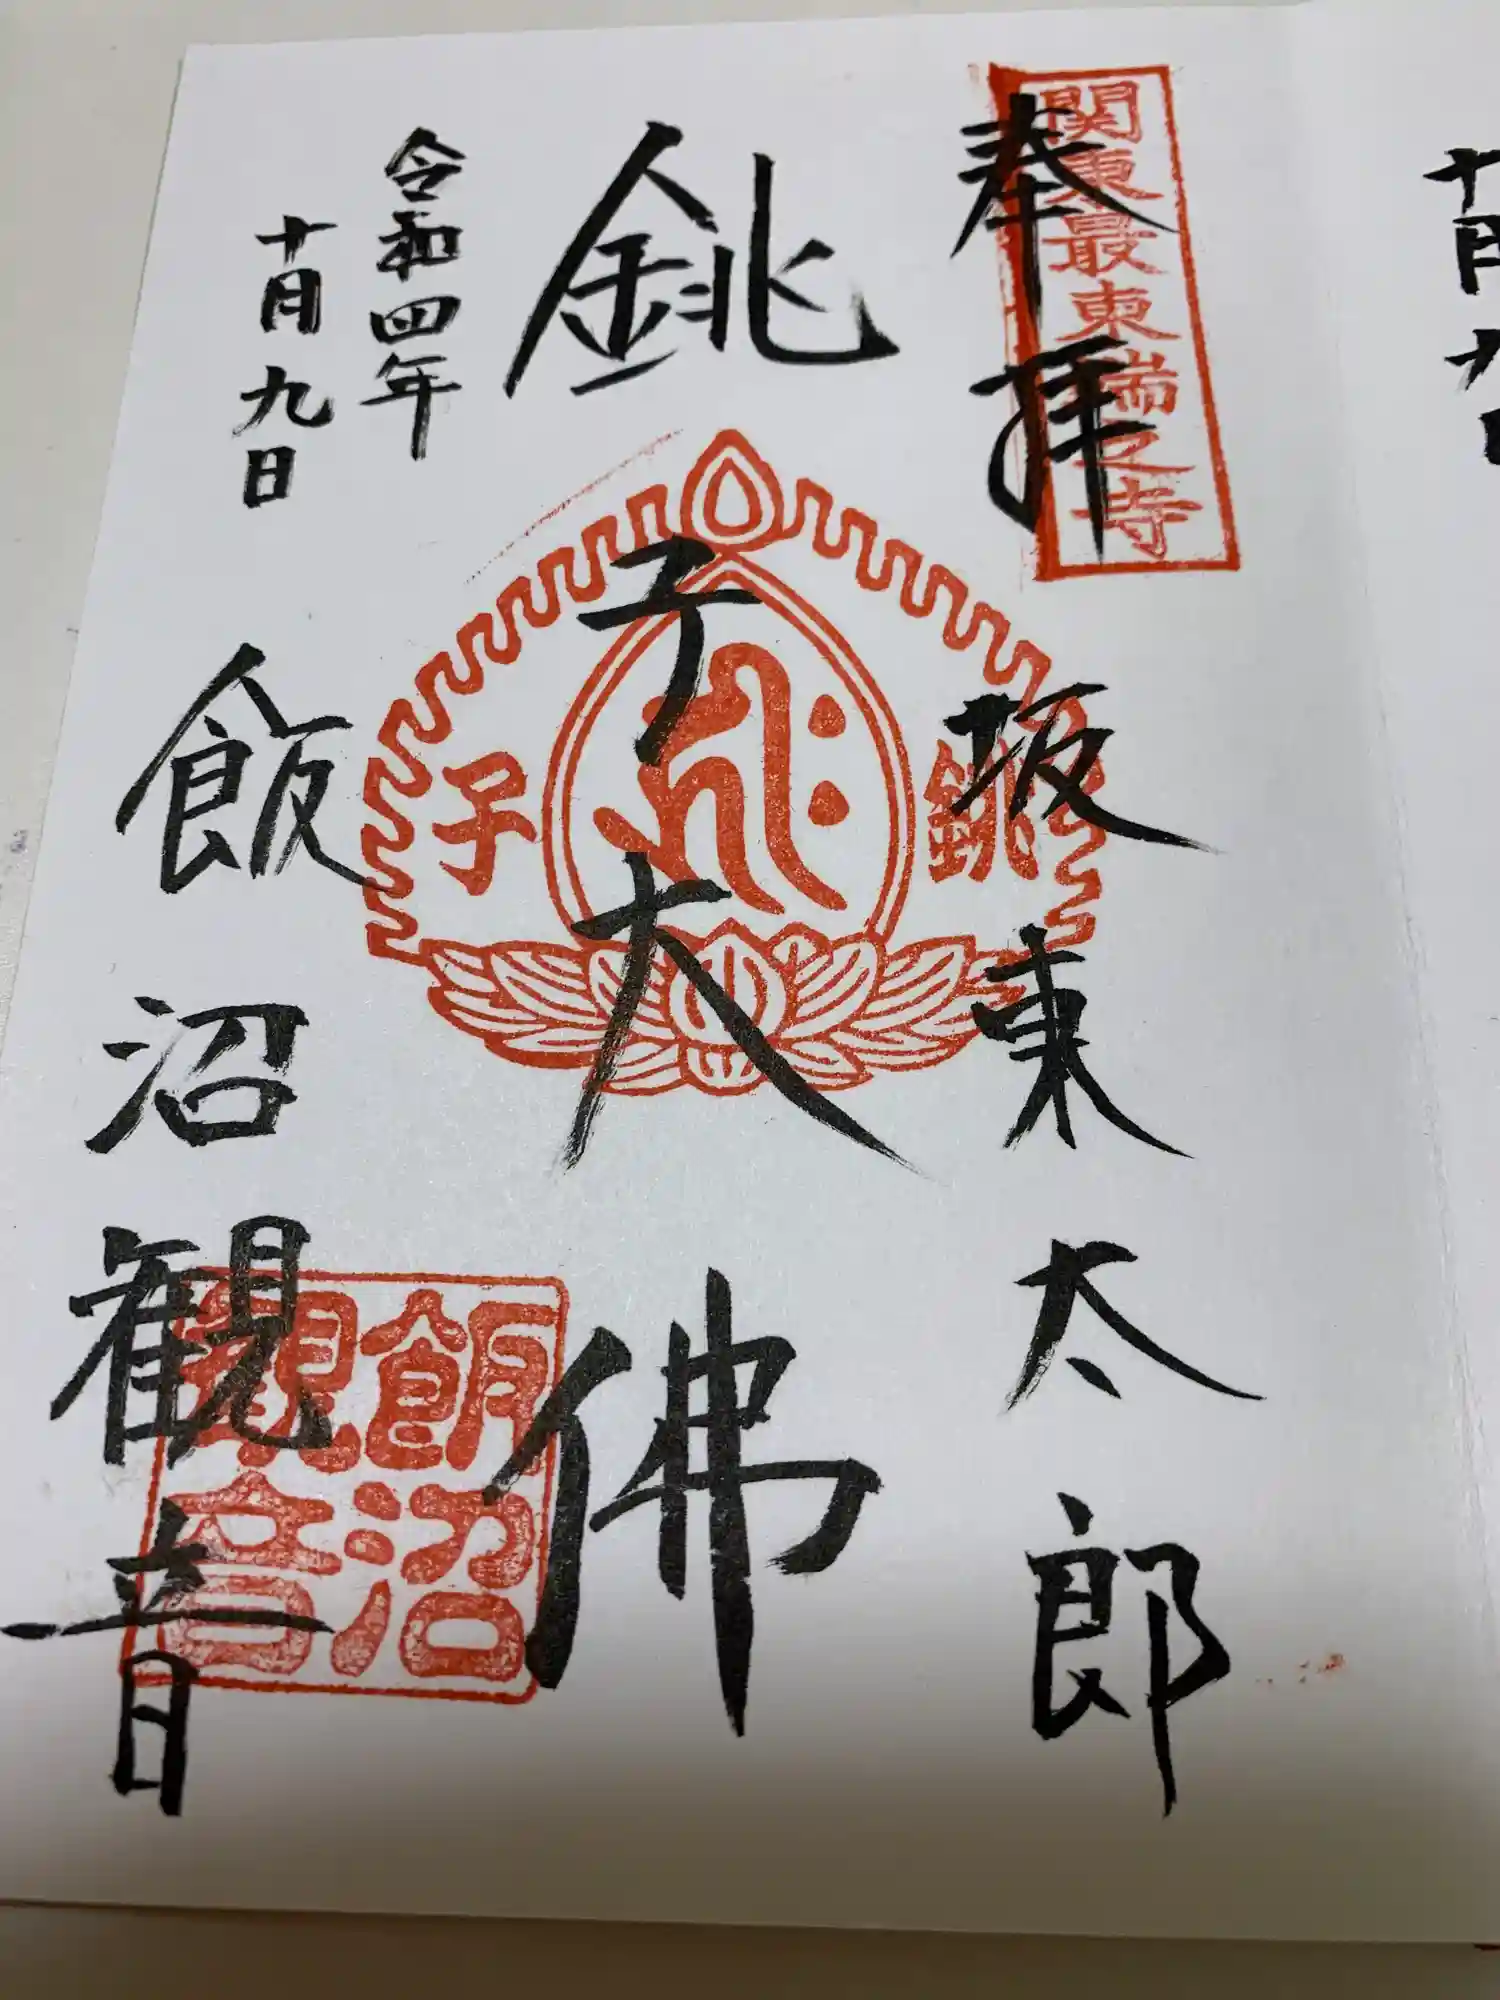 十月九日
関東最東端之寺
奉拝
坂東太郎
銚子大佛
銚
子
令和四年
十月九日
飯沼観音
飯沼
観音